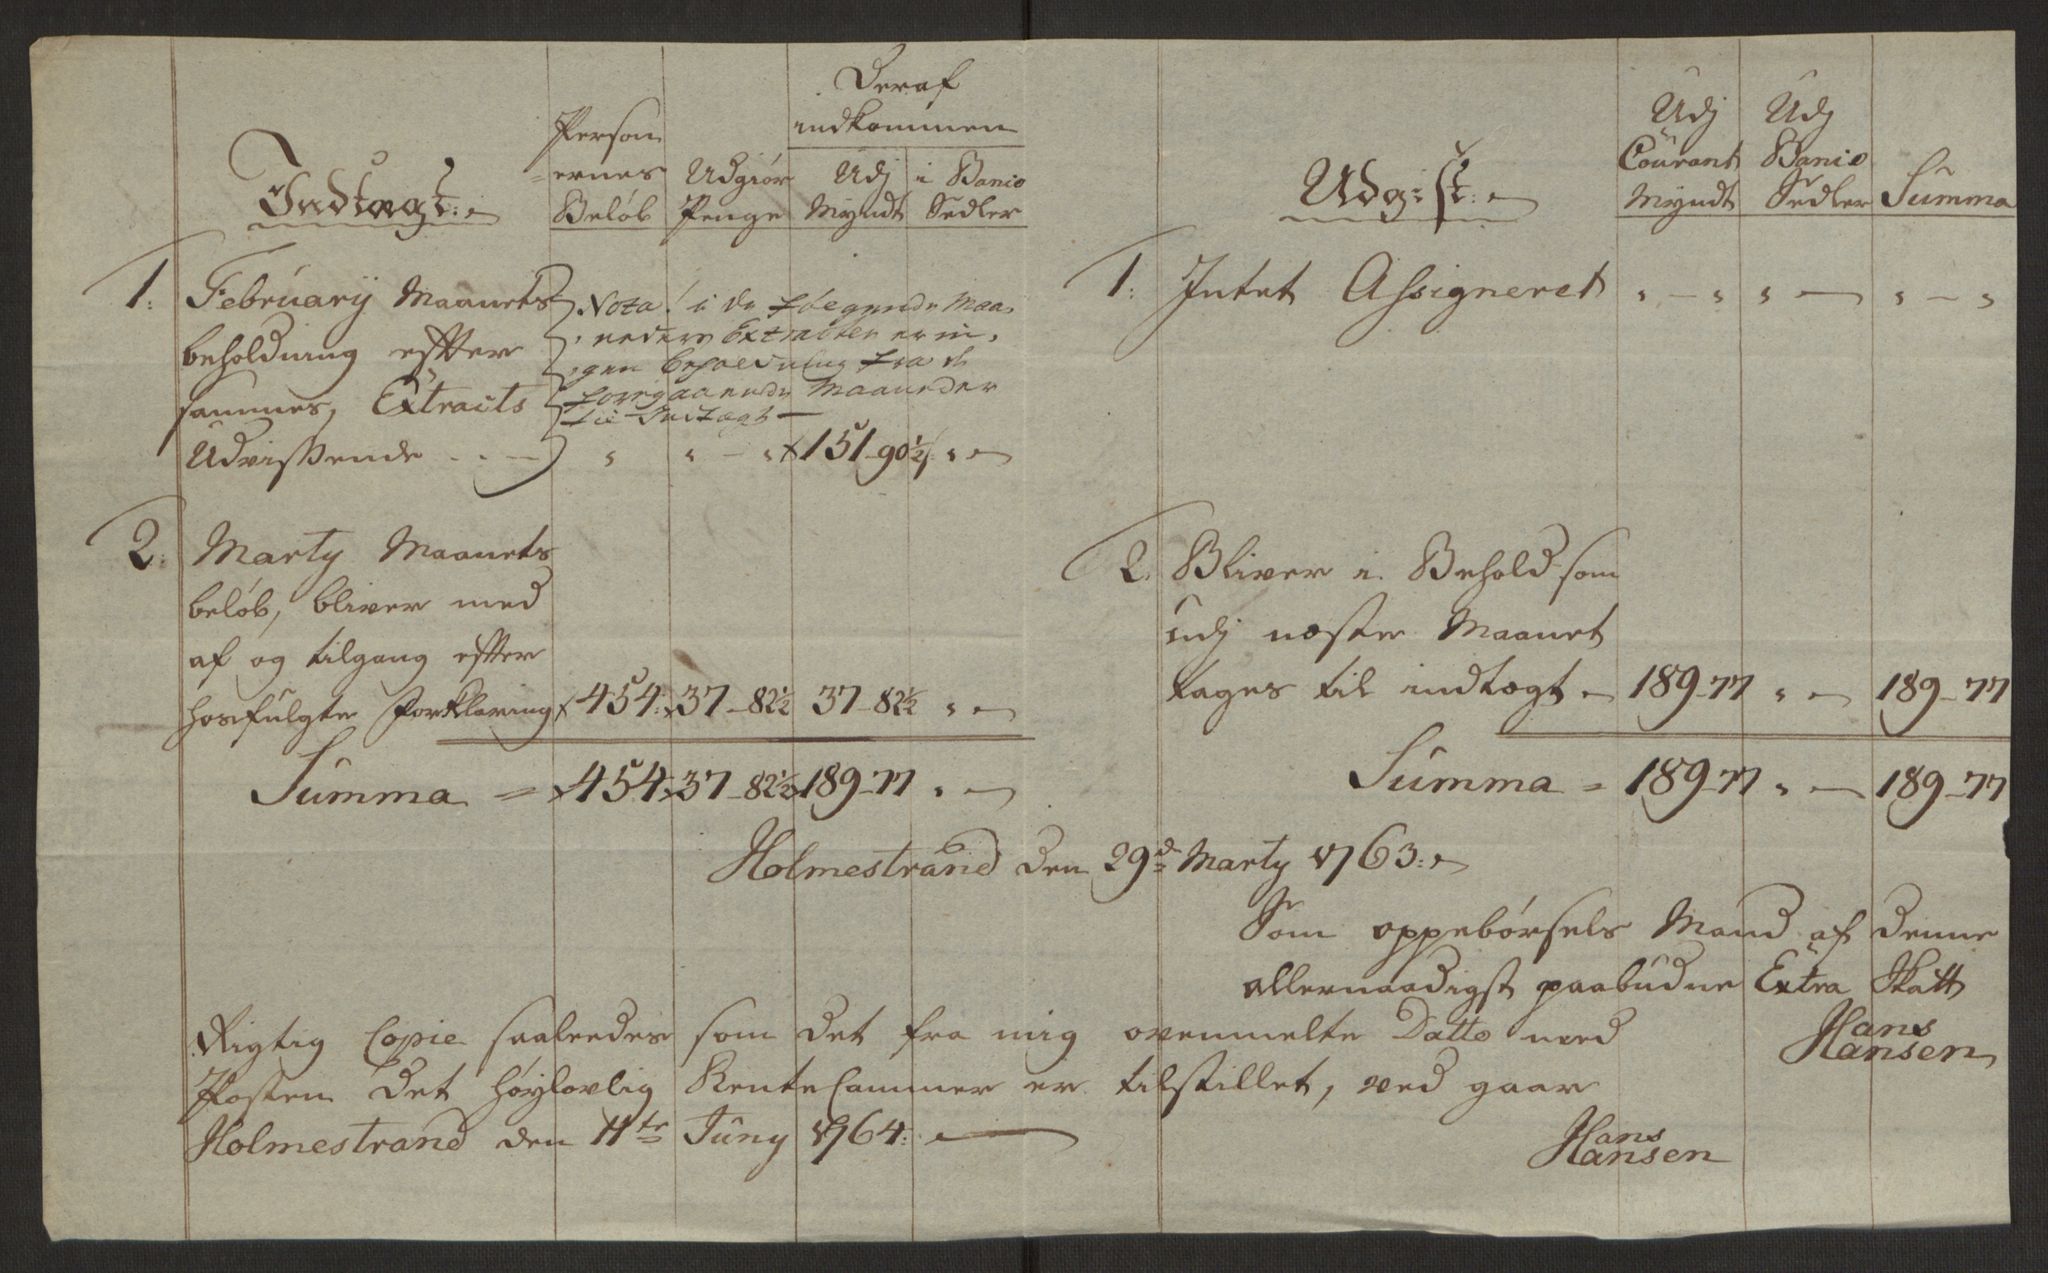 Indtægt:
Person
ernes
Beløb
Udgiør
Penge
Deraf
indkommen
Udj
Myndt
i Banco
Sedler
1. Februarij Maanets
beholdning effter
sammes, Extracts
Udvissende
Nota! i de følgende Maa,
neders Extracter er in,
gen beholdning fra de
foregaaende Maaneder
til Indtægt
151-90½
2. Marty Maanets
beløb, bliver med
af og tilgang effter
hosfulgte Forklaring 454: 37-82½ 37-82½
Summa = 454: 37-82½ 189-77
Udgift:
Udj
Courant
Myndt
Udj
Banco
Sedler
Summa
1. Intet Assigneret
2. Bliver i Behold som
udj næste Maanet
tages til indtægt 189-77 189-77
Summa = 189-77 189-77
Holmestrand den 29d Marty 1763:
Som oppebørsels Mand af denne
allernaadigst paabudne Extra Skatt
Hans
Hansen
Rigtig Copie saaledes som det fra mig ovenmelte Datto med
Posten det høylovlig RenteCammer er tilstillet, ved gaar
Holmestrand den 11te Juny 1764:
Hans
Hansen